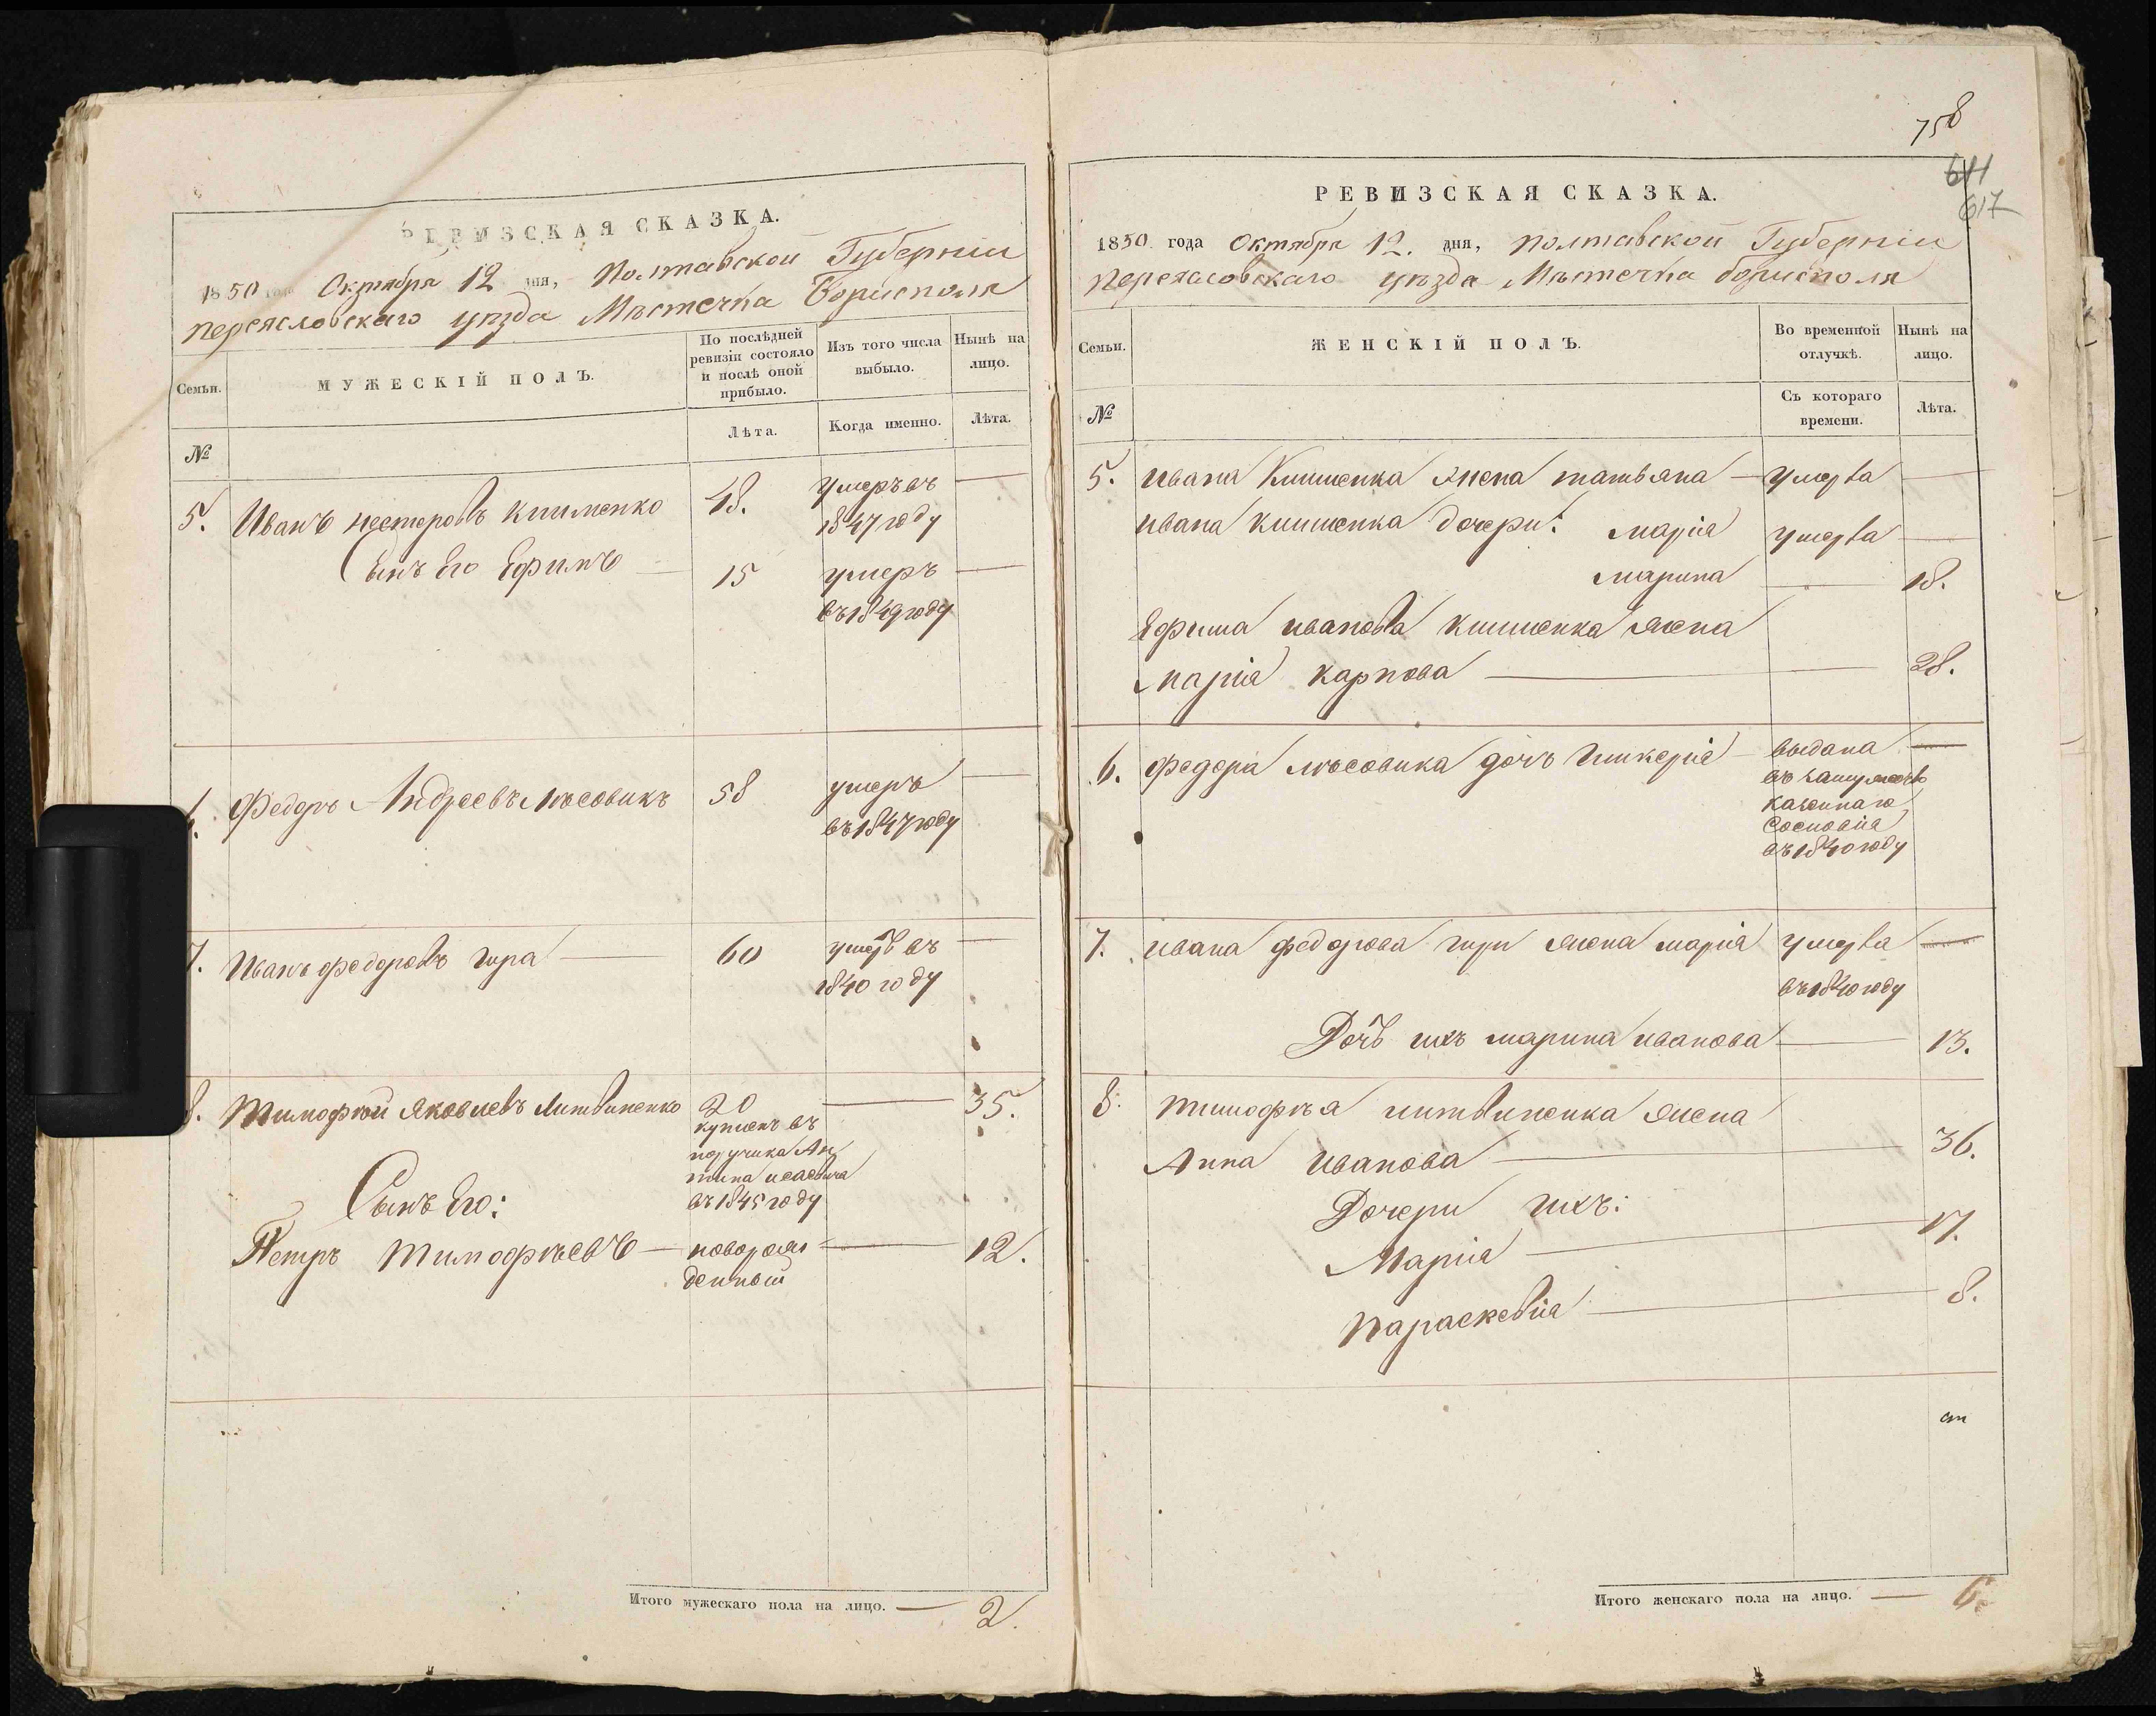 РЕВИЗСКАЯ СКАЗКА.
1850 года Октября 12 дня, Полтавской Губернии
Переясловскаго уезда Мѣстечка Борисполя
Семьи.
МУЖЕСКІЙ ПОЛЪ.
По послѣдней ревизіи состояло и послѣ оной прибыло.
Изъ того числа выбыло.
Нынѣ на лицо.
№
Лѣта.
Когда именно.
Лѣта.
5. Иванъ Нестеровъ Клименко 48. умеръ въ —
1847 году
Сынъ Его Ефимъ — 15 умеръ —
въ 1849 году
6. Федоръ Андреевъ Лѣсовикъ 58 умеръ —
въ 1847 году
7. Иванъ Федоровъ Гира — 60 умеръ въ —
1840 году
8. Тимофей Яковлевъ Литвиненко 20 — 35.
купленъ въ
поручика Ан
тина Исаевича
въ 1845 году
Сынъ Его:
Петръ Тимофѣевъ — новорож= — 12.
денный
Итого мужескаго пола на лицо. — 2.
758
611
617
РЕВИЗСКАЯ СКАЗКА.
1850 года Октября 12. дня, Полтавской Губерніи
Переясловскаго уѣзда Мѣстечка Борисполя
Семьи.
ЖЕНСКІЙ ПОЛЪ.
Во временной отлучкѣ.
Нынѣ на лицо.
№
Съ котораго времени.
Лѣта.
5. Ивана Клименка Жена Татьяна — умерла —
Ивана Клименка дочери: Марія умерла —
Марина — 18.
Ефима Иванова Клименка Жена
Марія Карпова — 28.
6. Федора Лѣсовика дочь Гликерія — выдана —
въ замужество
казеннаго
Сословія
въ 1840 году
7. Ивана Федорова Гири Жена Марія умерла —
въ 1840 году
Дочь ихъ Марина Иванова — 13.
8. Тимофѣя Литвиненка Жена
Анна Иванова — 36.
Дочери ихъ:
Марія — 17.
Параскевія — 8.
Итого женскаго пола на лицо. — 6.